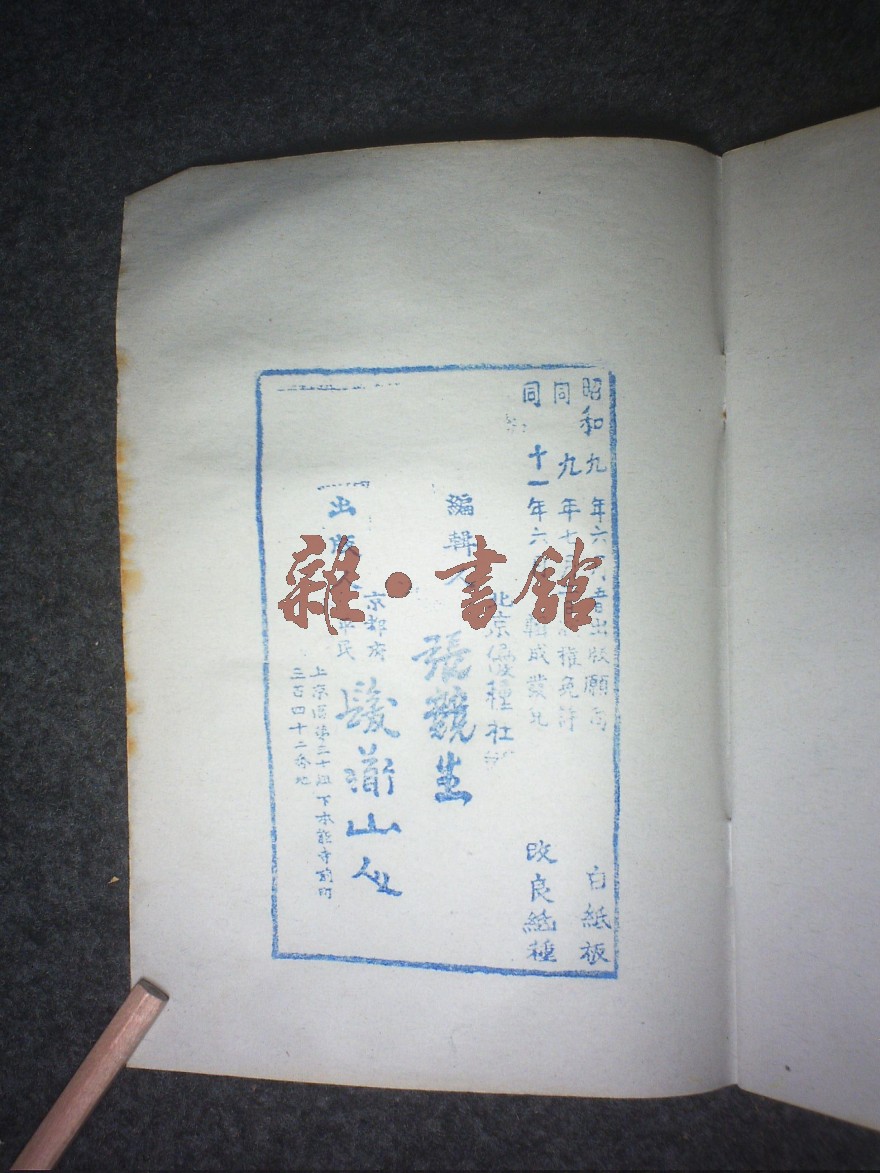 昭和九年六月 出版願 白紙板
同 九年七月 權免許
同 十一年六月 輯成發兌 改良紙種
北京優種社
編輯人 張競生
京都府平民
出版人 山人
上京區第二十組下本能寺前町
三百四十二番地
雜·書館